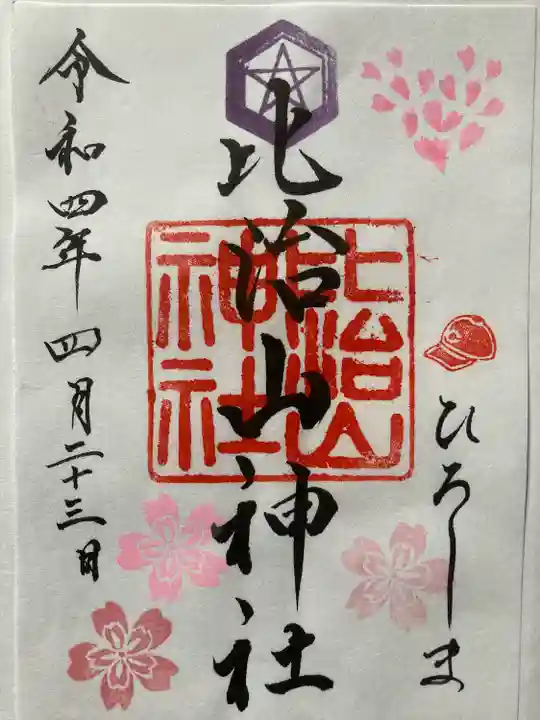 ひろしま
比治山神社
比治山
神社
令和四年四月二十三日